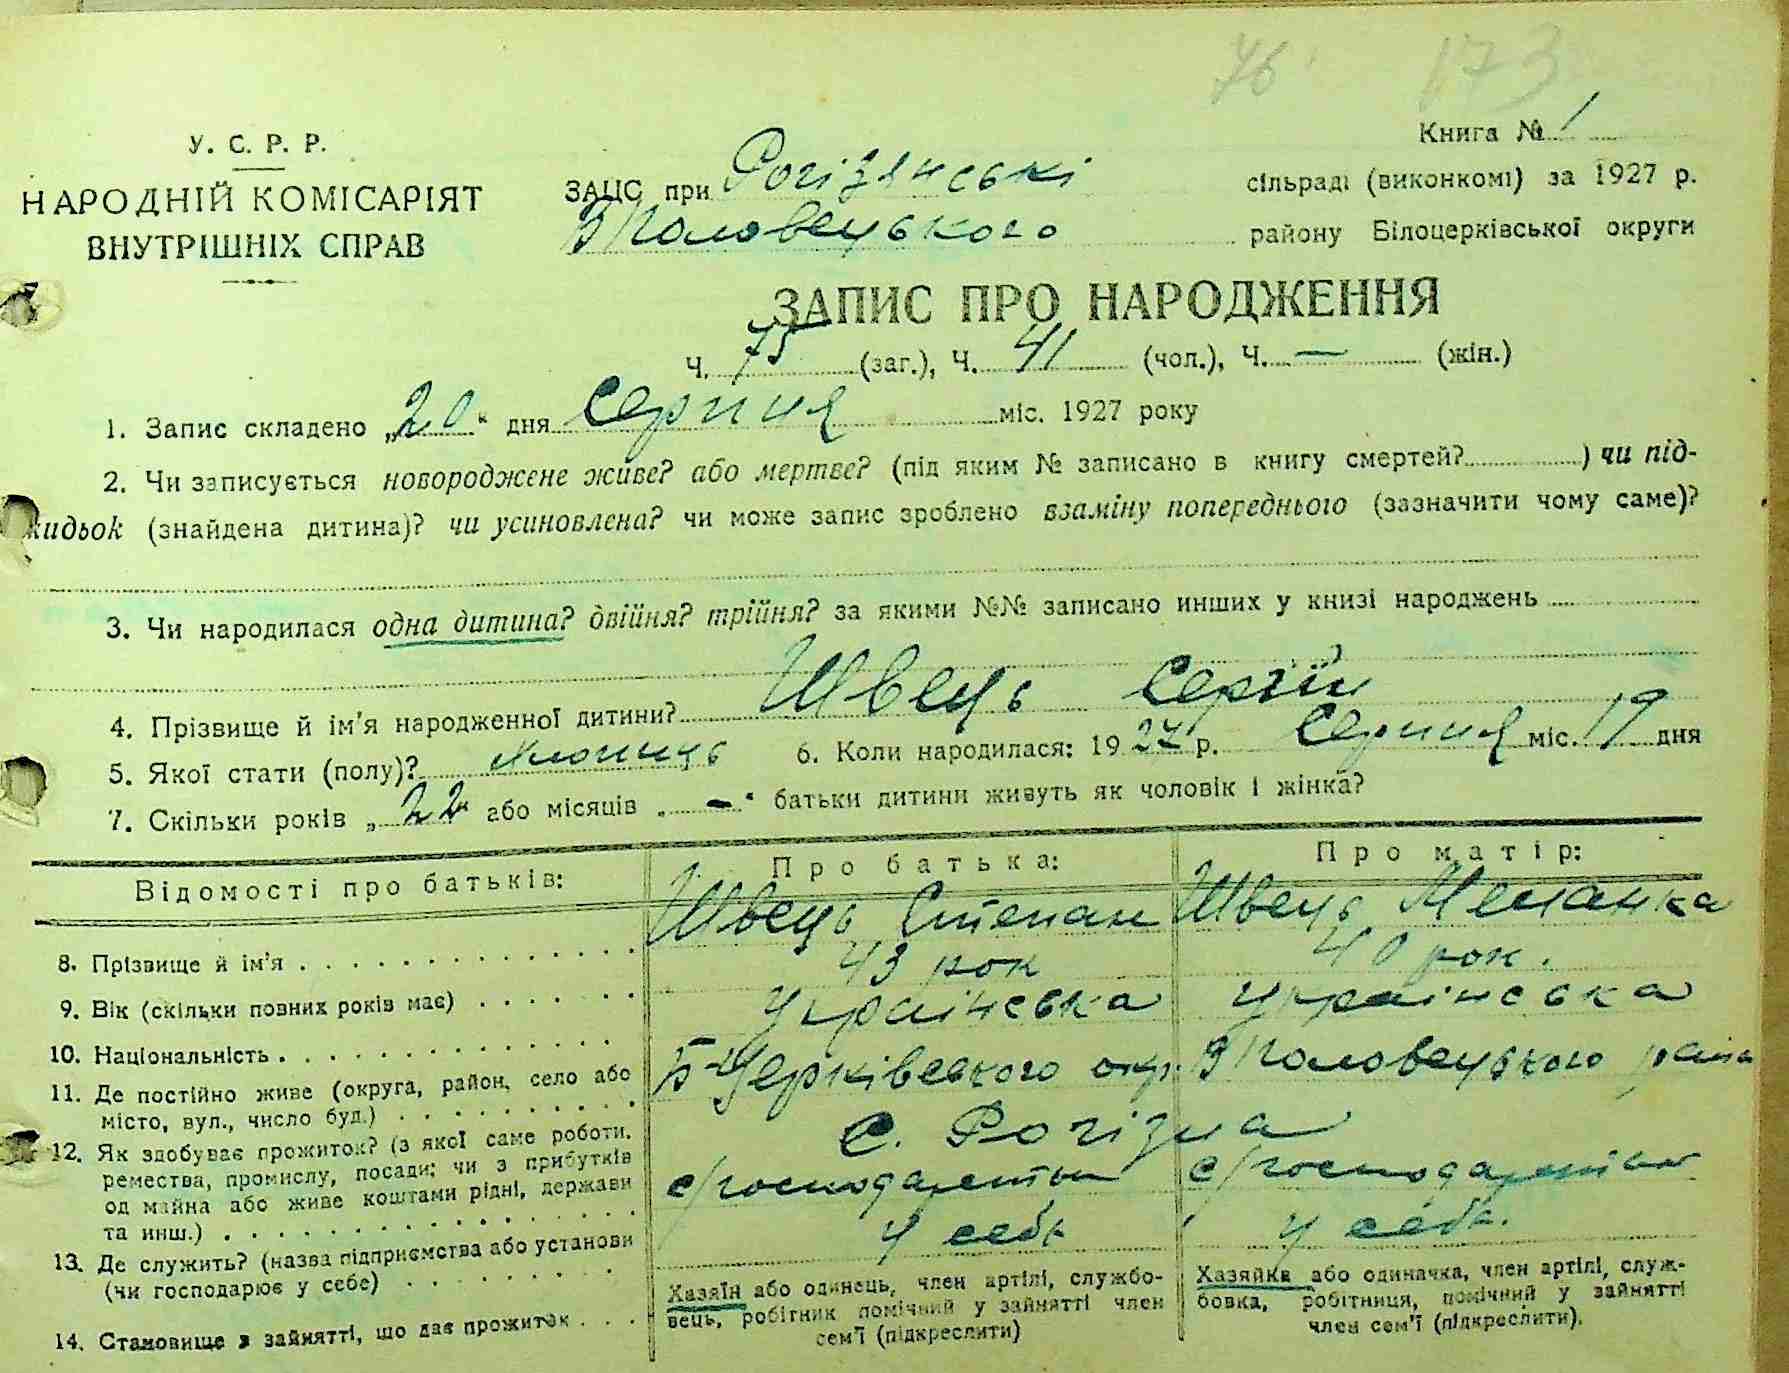 76 173
Книга № 1
У. С. Р. Р.
НАРОДНІЙ КОМІСАРІЯТ
ВНУТРІШНІХ СПРАВ
ЗАЦС при Рогізянські сільраді (виконкомі) за 1927 р.
В Половецького району Білоцерківської округи
ЗАПИС ПРО НАРОДЖЕННЯ
Ч. 75 (заг.), Ч. 41 (чол.), Ч. — (жін.)
1. Запис складено „20“ дня Серпня міс. 1927 року
2. Чи записується новороджене живе? або мертве? (під яким № записано в книгу смертей? ) чи під-
кидьок (знайдена дитина)? чи усиновлена? чи може запис зроблено взаміну попереднього (зазначити чому саме)?
3. Чи народилася одна дитина? двійня? трійня? за якими №№ записано инших у книзі народжень
4. Прізвище й ім'я народженної дитини? Швець Сергій
5. Якої стати (полу)? хлопець 6. Коли народилася: 1927 р. Серпня міс. 19 дня
7. Скільки років „22“ або місяців „-“ батьки дитини живуть як чоловік і жінка?
Відомості про батьків: Про батька: Про матір:
8. Прізвище й ім'я Швець Степан Швець Меланка
9. Вік (скільки повних років має) 43 рок 40 рок.
10. Національність українська українська
11. Де постійно живе (округа, район, село або
місто, вул., число буд.) Б-Церківського окр. В Половецького
с. Рогізна
12. Як здобуває прожиток? (з якої саме роботи,
ремества, промислу, посади; чи з прибутків
од майна або живе коштами рідні, держави
та инш.)
13. Де служить? (назва підприємства або установи
(чи господарює у себе) у себе у себе.
14. Становище в зайнятті, що дає прожиток
Хазяїн або одинець, член артілі, службо-
вець, робітник помічний у зайнятті член
сем'ї (підкреслити)
Хазяйка або одиначка, член артілі, служ-
бовка, робітниця, помічний у зайнятті
член сем'ї (підкреслити).